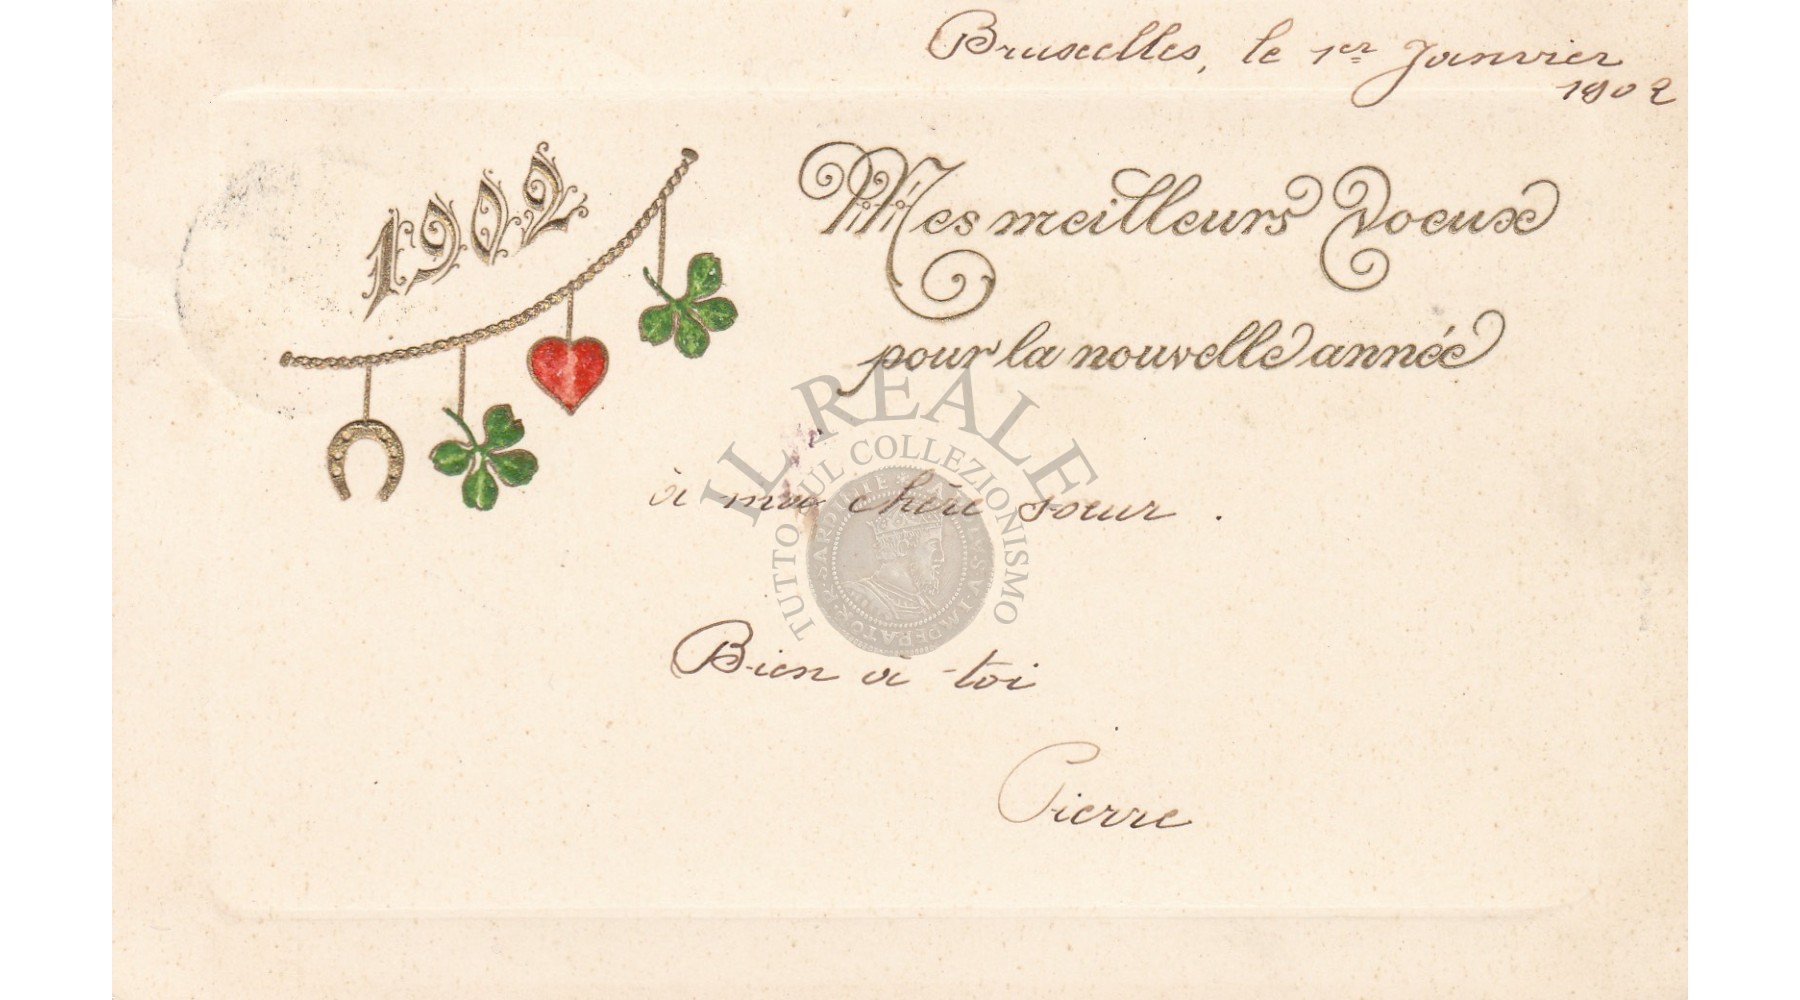 Bruxelles, le 1er Janvier
1902
1902
Mes meilleurs Voeux
pour la nouvelle année
à ma chère soeur.
Bien à toi
Pierre
IL REALE
TUTTO SUL COLLEZIONISMO